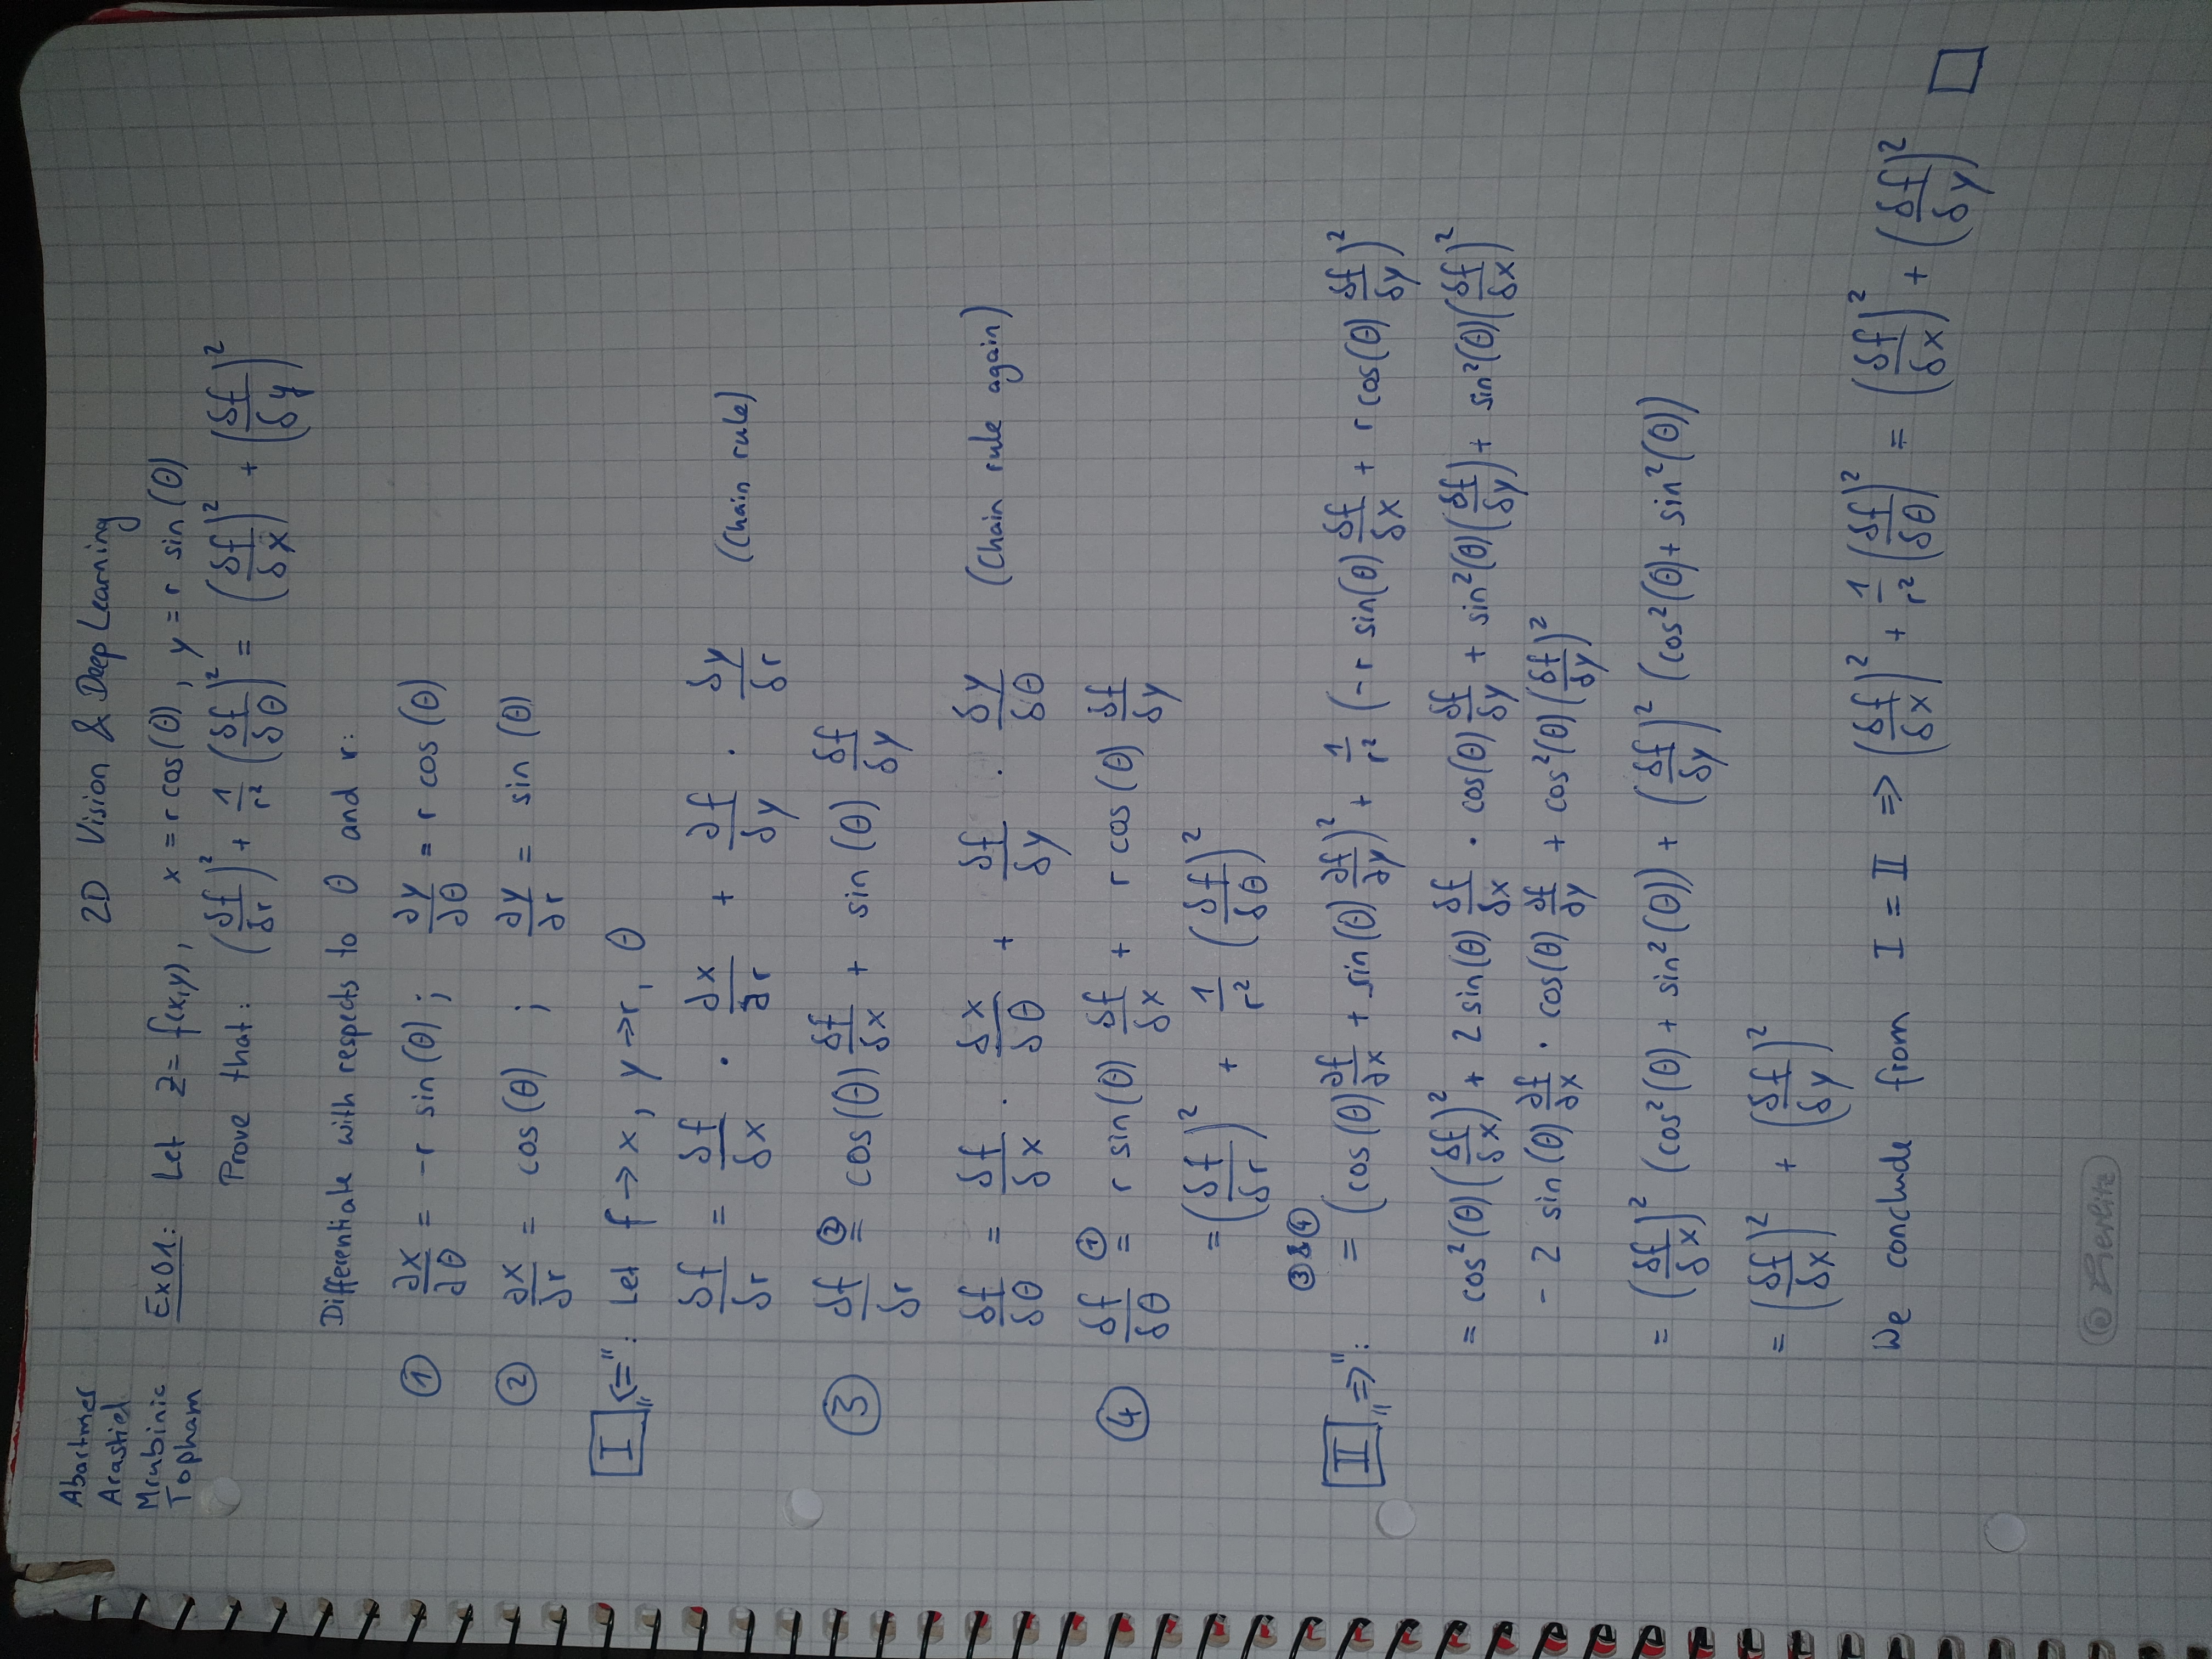 Abartmer
Arastiel
Mrubinic
Topham
2D Vision & Deep Learning
Ex01: Let z = f(x,y), x = r cos(θ), y = r sin(θ)
Prove that: (δf/δr)² + 1/r² (δf/δθ)² = (δf/δx)² + (δf/δy)²
Differentiate with respects to θ and r:
① ∂x/∂θ = -r sin(θ); ∂y/∂θ = r cos(θ)
② ∂x/∂r = cos(θ) ; ∂y/∂r = sin(θ)
I „<=": Let f → x, y → r, θ
δf/δr = δf/δx · ∂x/∂r + ∂f/δy · δy/δr (Chain rule)
③ δf/δr =② cos(θ) δf/δx + sin(θ) δf/δy
δf/δθ = δf/δx · δx/δθ + δf/δy · δy/δθ (Chain rule again)
④ δf/δθ =① r sin(θ) δf/δx + r cos(θ) δf/δy
= (δf/δr)² + 1/r² (δf/δθ)²
③&④
II „=>": = (cos(θ) ∂f/∂x + sin(θ) ∂f/∂y)² + 1/r² (-r sin(θ) δf/δx + r cos(θ) δf/δy)²
= cos²(θ) (δf/δx)² + 2 sin(θ) δf/δx · cos(θ) δf/δy + sin²(θ) (δf/δy) + sin²(θ) (δf/δx)²
- 2 sin(θ) ∂f/∂x · cos(θ) ∂f/∂y + cos²(θ) (δf/δy)²
= (δf/δx)² (cos²(θ) + sin²(θ)) + (δf/δy)² (cos²(θ) + sin²(θ))
= (δf/δx)² + (δf/δy)²
We conclude from I = II => (δf/δx)² + 1/r² (δf/δθ)² = (δf/δx)² + (δf/δy)² □
Herlitz